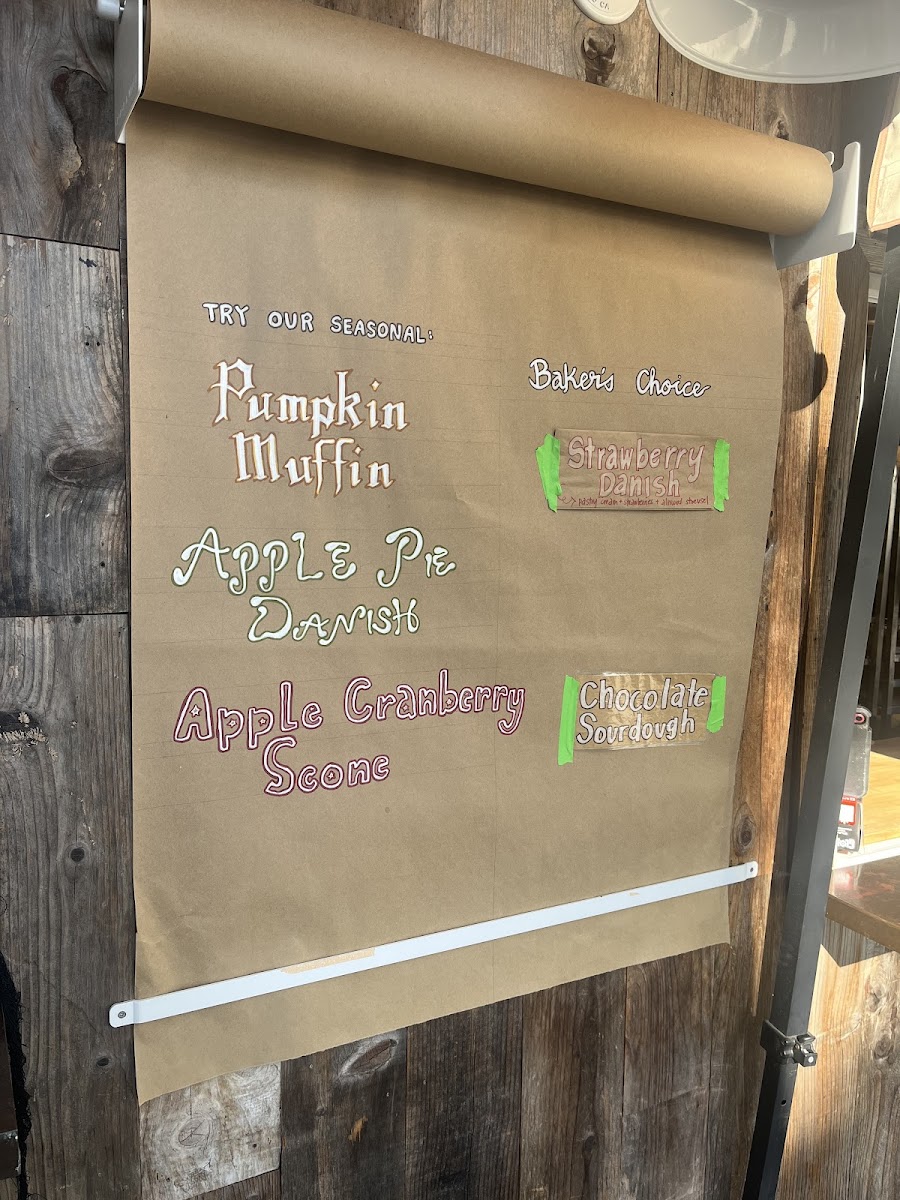 TRY OUR SEASONAL:
Pumpkin
Muffin
APPLE PIE
DANISH
Apple Cranberry
Scone
Baker's Choice
Strawberry
Danish
pastry cream + strawberries + almond streusel
Chocolate
Sourdough